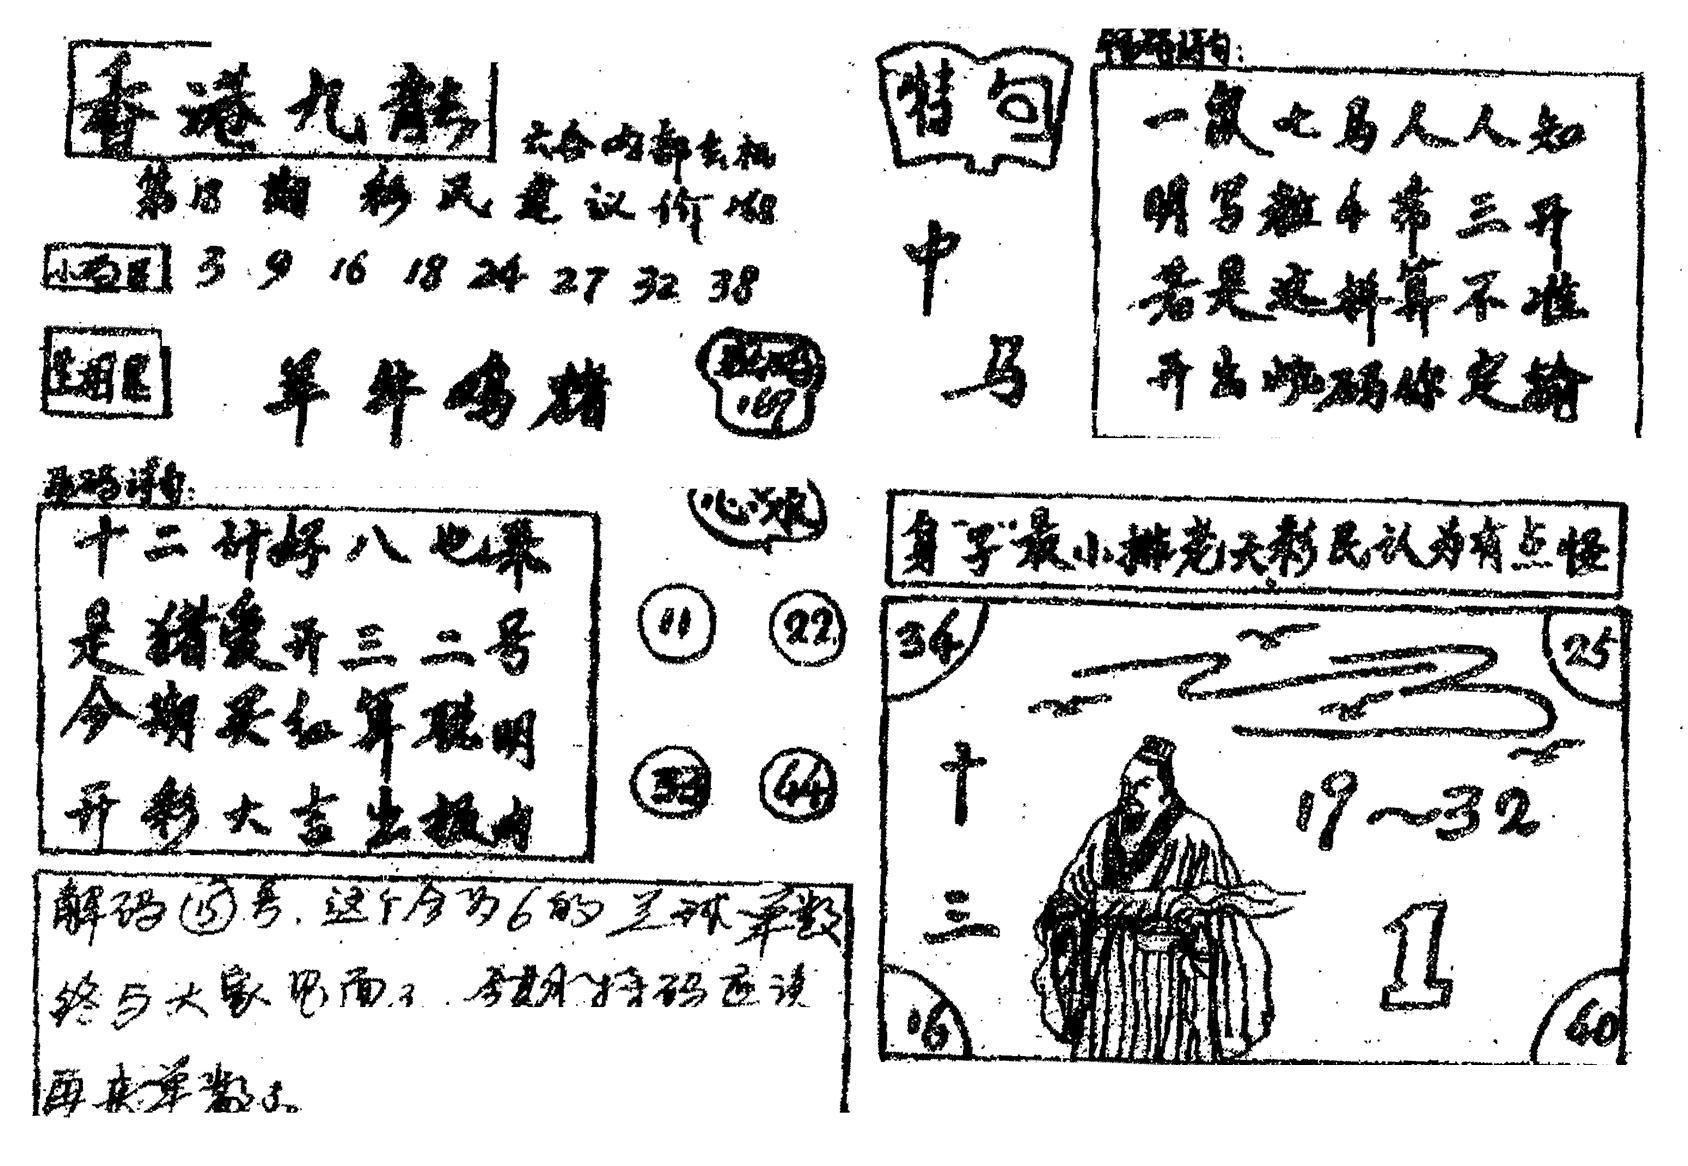 香港九龍
六合内部玄机
第18期 彩民建议价168
3 9 16 18 24 27 32 38
生相
羊 牛 鸡 猪
169
码诗句:
十二计好八也来
是猪爱开三二号
今期买红算聪明
开彩大吉出

心水
11 22
33 44
解码 15 号.这个今为6的 单数
终与大家见面了.今期个特码应该
再来单数了。
特句
中
马
诗句:
一鼠七马人人知
明写 4常三开
若是这样算不准
开出 码你定输
身子最小排老天彩民认为有点怪
34 25
十
三
19~32
1
16 40